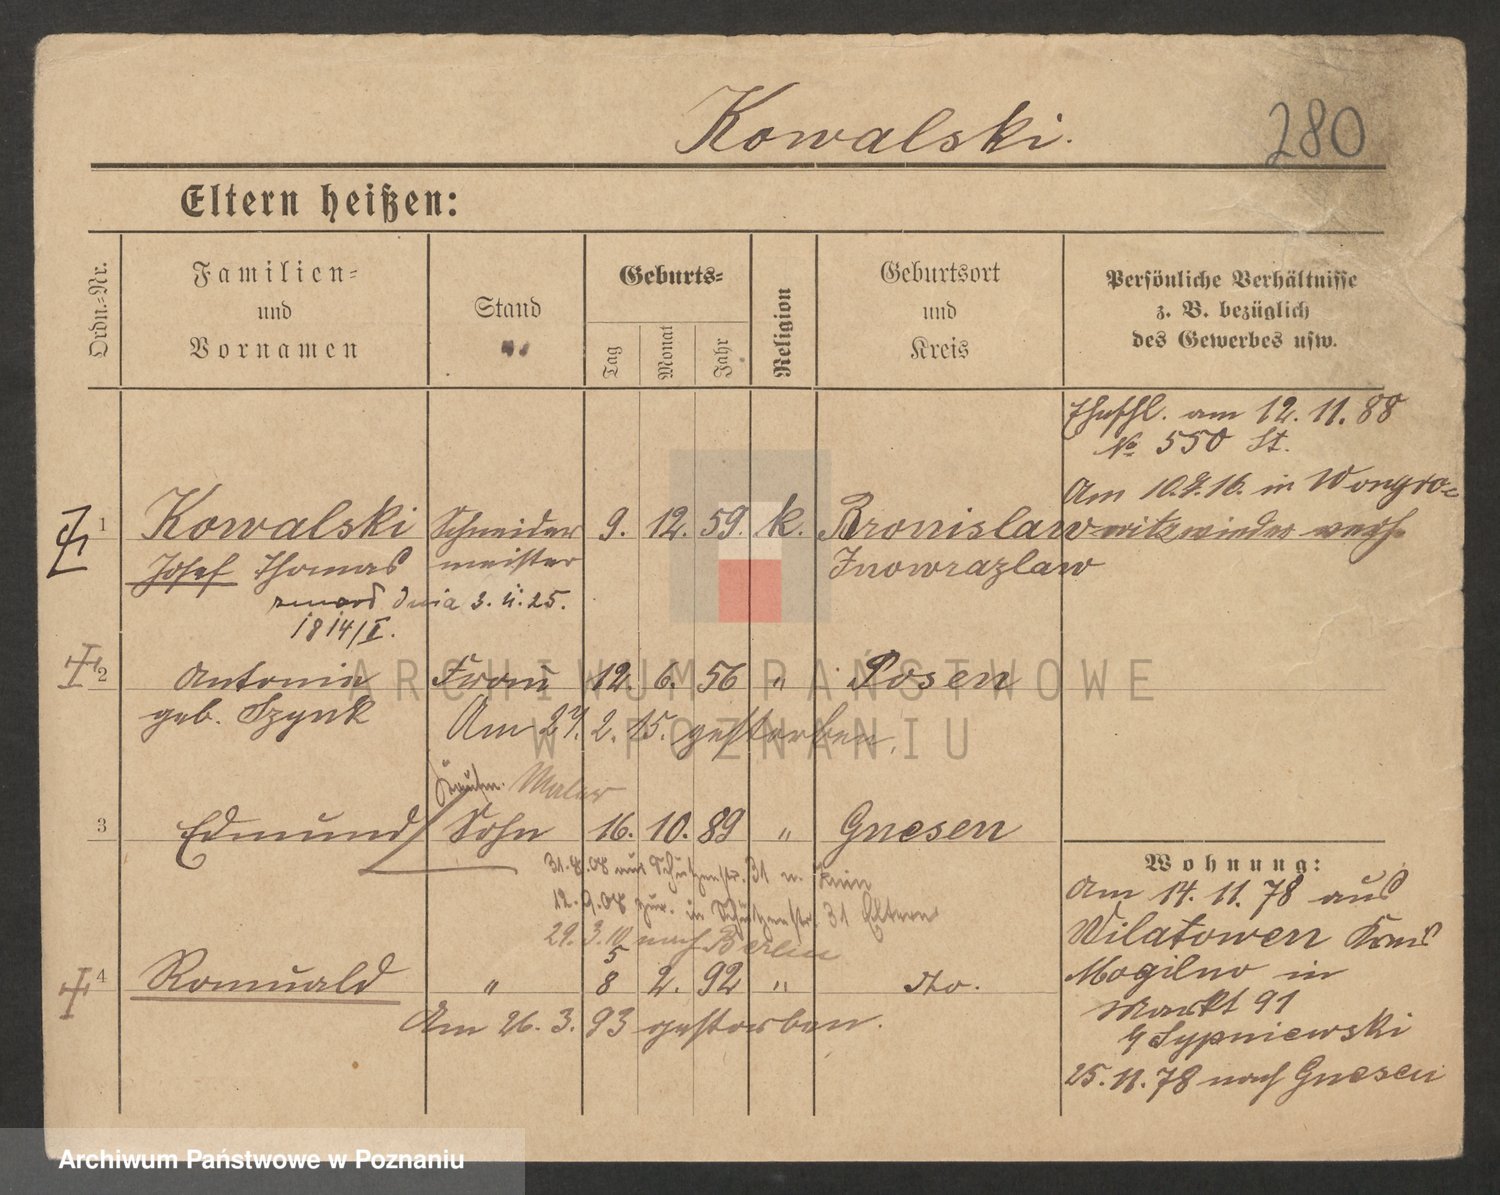 Kowalski.
280
Eltern heißen:
Ordn.-Nr.
Familien-
und
Vornamen
Stand
Geburts-
Tag
Monat
Jahr
Religion
Geburtsort
und
Kreis
Persönliche Verhältnisse
z. B. bezüglich
des Gewerbes usw.
am 12. 11. 88
№ 550 St.
Am 10.7.16. in Wongro-
1 Kowalski Schneider 9. 12. 59. k. Bronislaw witz wieder verh.
Josef Thomas meister Inowrazlaw
zmarł dnia 3. 4. 25.
1814/I.
2 Antonia Frau 12. 6. 56 " Posen
geb. Szynk Am 27. 2. 15. gestorben.
Kaufm. Maler
3 Edmund Sohn 16. 10. 89 " Gnesen
Wohnung:
31.8.08 nur Schützenstr. 31 n.
12.9.08 zur. in Schützenstr. 31 Eltern
29.3.10 nach Berlin
5
4 Romuald " 8 2. 92 " dto.
Am 26. 3. 93 gestorben.
Am 14. 11. 78 aus
Wilatowen Kreis
Mogilno in
Markt 91
b/ Sypniewski
25. 11. 78 nach Gnesen
ARCHIWUM PAŃSTWOWE
W POZNANIU
Archiwum Państwowe w Poznaniu